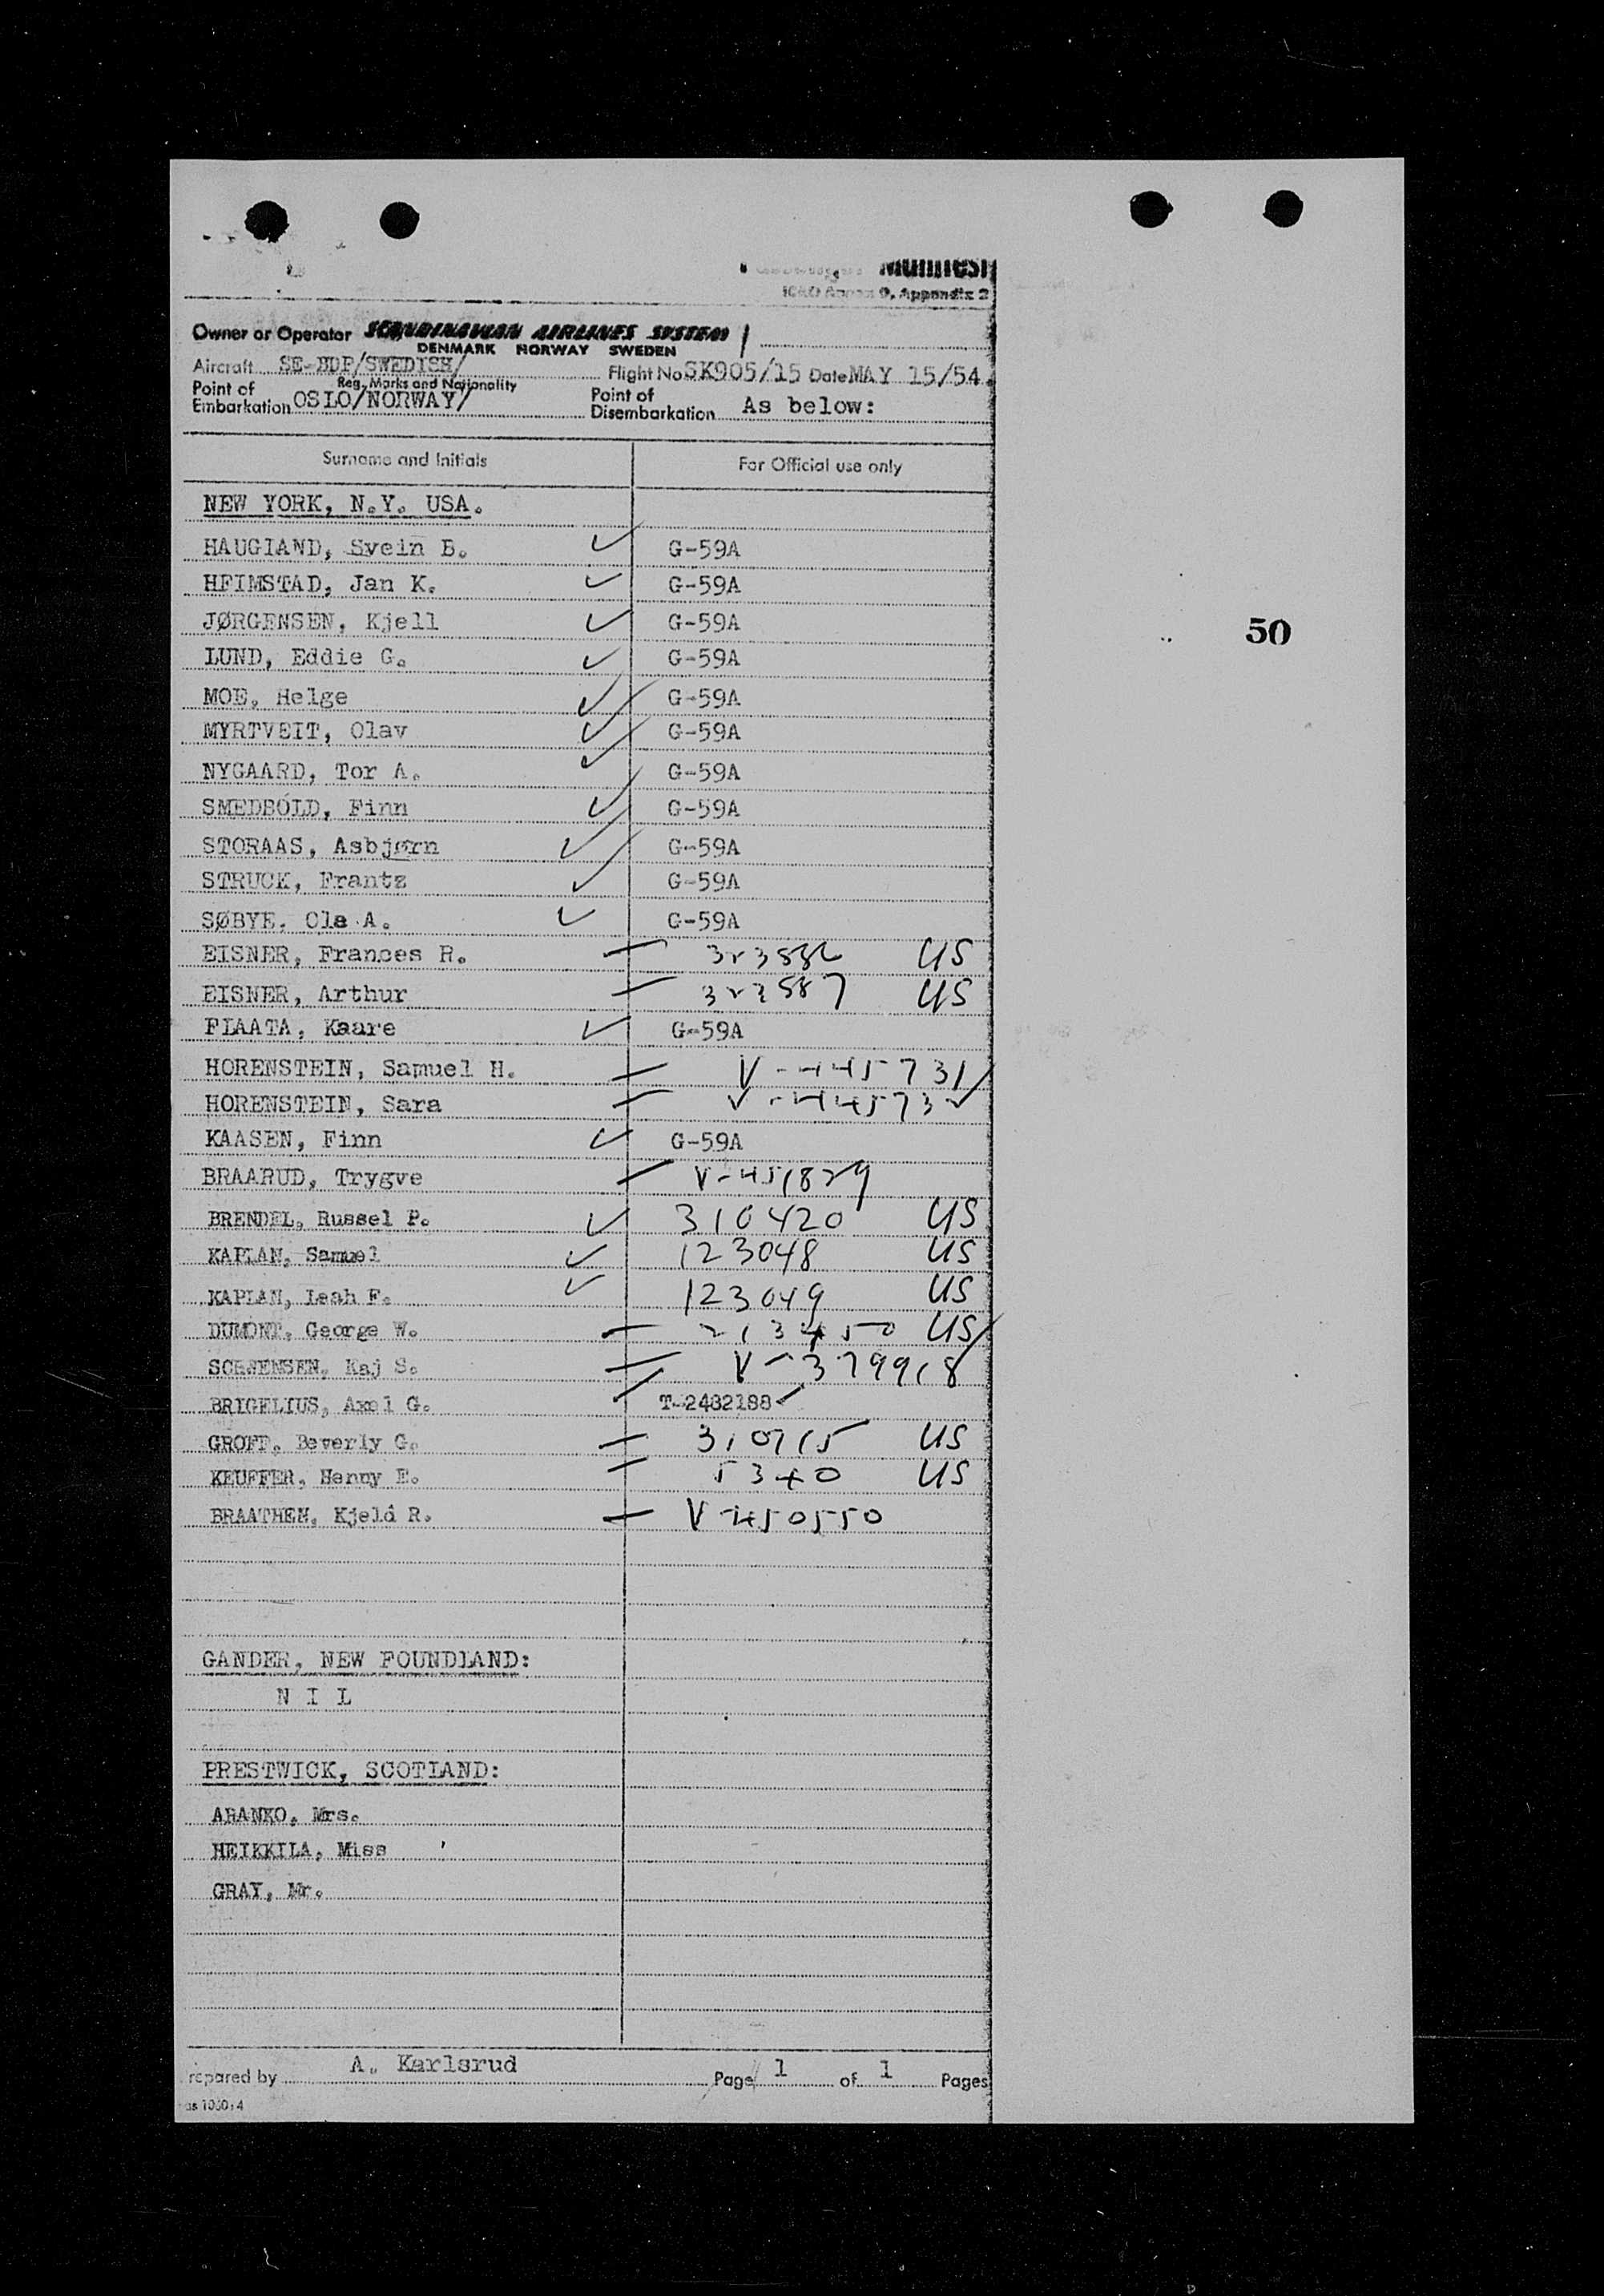 Manifest
ICAO Annex 9, Appendix 2
Owner or Operator SCANDINAVIAN AIRLINES SYSTEM
DENMARK NORWAY SWEDEN
Aircraft SE-BDP/SWEDISH/ Flight No SK905/15 Date MAY 15/54.
Reg. Marks and Nationality
Point of Embarkation OSLO/NORWAY/ Point of Disembarkation As below:
Surname and Initials For Official use only
NEW YORK, N.Y. USA.
HAUGLAND, Svein B. G-59A
HEIMSTAD, Jan K. G-59A
JØRGENSEN, Kjell G-59A
50
LUND, Eddie G. G-59A
MOE, Helge G-59A
MYRTVEIT, Olav G-59A
NYGAARD, Tor A. G-59A
SMEDBOLD, Finn G-59A
STORAAS, Asbjørn G-59A
STRUCK, Frantz G-59A
SØBYE. Ole A. G-59A
EISNER, Frances R. 323586 US
EISNER, Arthur 323587 US
FLAATA, Kaare G-59A
HORENSTEIN, Samuel H. V-445731
HORENSTEIN, Sara V-445732
KAASEN, Finn G-59A
BRAARUD, Trygve V-451829
BRENDEL, Russel P. 310420 US
KAPLAN, Samuel 123048 US
KAPLAN, Leah F. 123049 US
DUMONT, George W. 213450 US
SORWENSEN, Kaj S. V-379918
BRIGELIUS, Axel G. T-2482188
GROFF, Beverly G. 310715 US
KEUFFER, Henny E. 5340 US
BRAATHEN, Kjeld R. V-450550
GANDER, NEW FOUNDLAND:
N I L
PRESTWICK, SCOTLAND:
ARANKO, Mrs.
HEIKKILA, Miss
GRAY, Mr.
A. Karlsrud
repared by Page 1 of 1 Pages